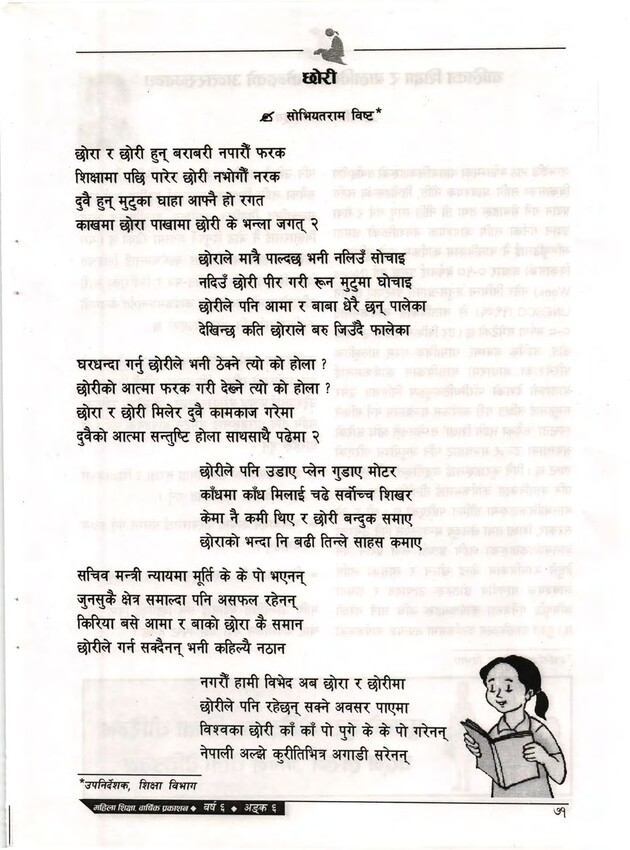 छोरी
सोभियतराम विष्ट*
छोरा र छोरी हुन् बराबरी नपारौं फरक
शिक्षामा पछि पारेर छोरी नभोगौं नरक
दुवै हुन् मुटुका घाहा आफ्नै हो रगत
काखमा छोरा पाखामा छोरी के भन्ला जगत् २
छोराले मात्रै पाल्दछ भनी नलिउँ सोचाइ
नदिउँ छोरी पीर गरी रून मुटुमा घोचाइ
छोरीले पनि आमा र बाबा धेरै छन् पालेका
देखिन्छ कति छोराले बरु जिउँदै फालेका
घरधन्दा गर्नु छोरीले भनी ठेक्ने त्यो को होला ?
छोरीको आत्मा फरक गरी देख्ने त्यो को होला ?
छोरा र छोरी मिलेर दुवै कामकाज गरेमा
दुवैको आत्मा सन्तुष्टि होला साथसाथै पढेमा २
छोरीले पनि उडाए प्लेन गुडाए मोटर
काँधमा काँध मिलाई चढे सर्वोच्च शिखर
केमा नै कमी थिए र छोरी बन्दुक समाए
छोराको भन्दा नि बढी तिन्ले साहस कमाए
सचिव मन्त्री न्यायमा मूर्ति के के पो भएनन्
जुनसुकै क्षेत्र समाल्दा पनि असफल रहेनन्
किरिया बसे आमा र बाको छोरा कै समान
छोरीले गर्न सक्दैनन् भनी कहिल्यै नठान
नगरौं हामी विभेद अब छोरा र छोरीमा
छोरीले पनि रहेछन् सक्ने अवसर पाएमा
विश्वका छोरी काँ काँ पो पुगे के के पो गरेनन्
नेपाली अल्झे कुरीतिभित्र अगाडी सरेनन्
*उपनिर्देशक, शिक्षा विभाग
महिला शिक्षा, वार्षिक प्रकाशन ◆ वर्ष ६ ◆ अङ्क ६
७१